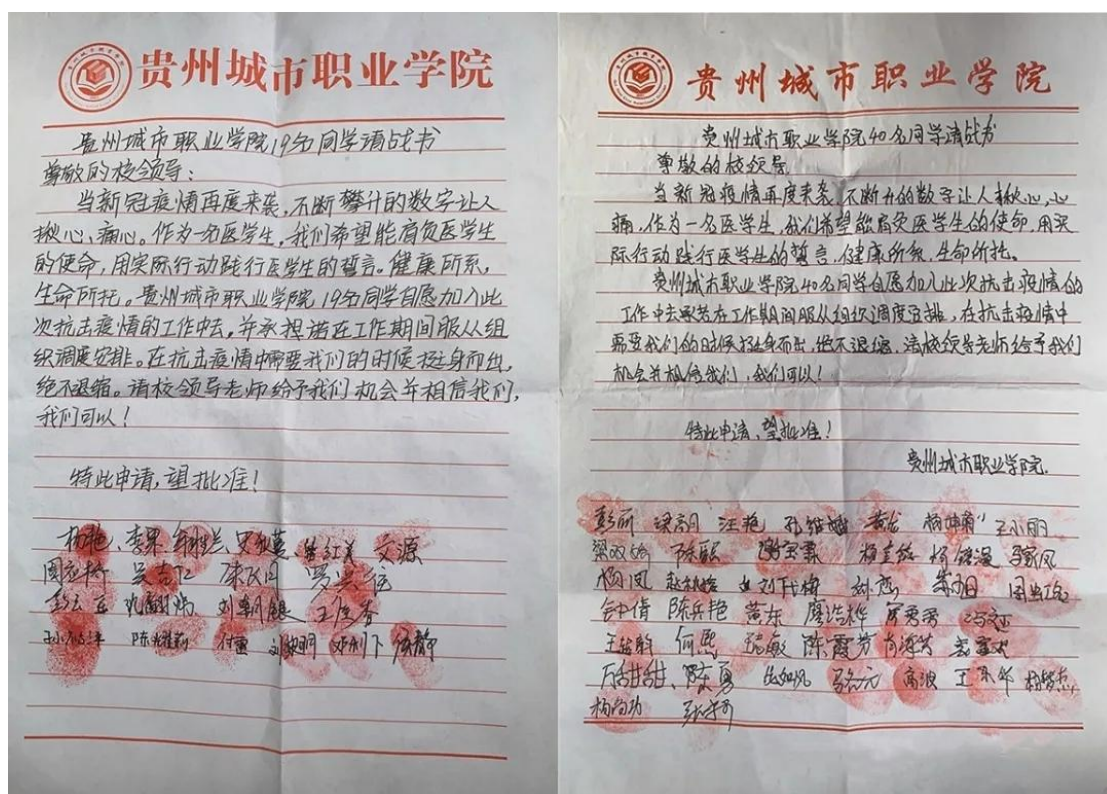 贵州城市职业学院
贵州城市职业学院19名同学请战书
尊敬的校领导:
当新冠疫情再度来袭,不断攀升的数字让人
揪心、痛心。作为一名医学生,我们希望能肩负医学生
的使命,用实际行动践行医学生的誓言。健康所系,
生命所托。贵州城市职业学院19名同学自愿加入此
次抗击疫情的工作中去,并承担诺在工作期间服从组
织调度安排。在抗击疫情中需要我们的时候挺身而出,
绝不退缩。请校领导老师给予我们机会并相信我们,
我们可以!
特此申请,望批准!
杨艳、李果 文源
周应梅 吴吉
王度香
陈耀莉 付重 刘朝明
贵州城市职业学院
贵州城市职业学院40名同学请战书
尊敬的校领导
当新冠疫情再度来袭,不断升的数字让人揪心,心
痛,作为一名医学生,我们希望能肩负医学生的使命,用实
际行动践行医学生的誓言,健康所系,生命所托。
贵州城市职业学院40名同学自愿加入此次抗击疫情的
工作中去承诺在工作期间服从组织调度安排,在抗击疫情中
需要我们的时候挺身而出,绝不退缩,请校领导老师给予我们
机会并相信我们,我们可以!
特此申请,望批准!
贵州城市职业学院
彭丽 梁高月 汪艳 黄龙 王小丽
陈熙
杨凤 刘代梅 孙燕
陈兵艳 黄东 廖浩桦
何熙 陈霞芳
万甜甜 陈勇 高波
杨向功